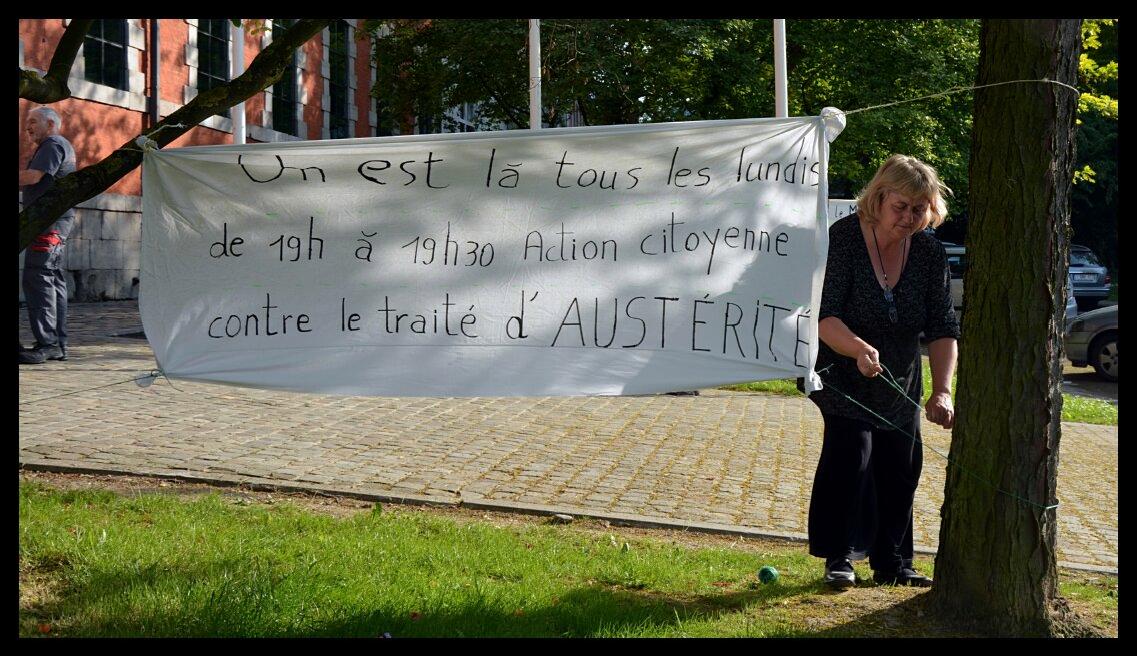 Un est là tous les lundis
de 19h à 19h30 Action citoyenne
contre le traité d'AUSTÉRITÉ
le